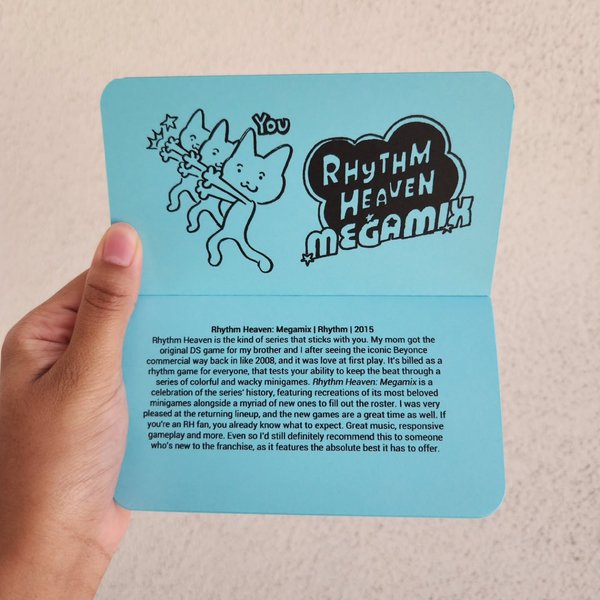 You
RHYTHM
HEAVEN
MEGAMIX
Rhythm Heaven: Megamix | Rhythm | 2015
Rhythm Heaven is the kind of series that sticks with you. My mom got the
original DS game for my brother and I after seeing the iconic Beyonce
commercial way back in like 2008, and it was love at first play. It's billed as a
rhythm game for everyone, that tests your ability to keep the beat through a
series of colorful and wacky minigames. Rhythm Heaven: Megamix is a
celebration of the series' history, featuring recreations of its most beloved
minigames alongside a myriad of new ones to fill out the roster. I was very
pleased at the returning lineup, and the new games are a great time as well. If
you're an RH fan, you already know what to expect. Great music, responsive
gameplay and more. Even so I'd still definitely recommend this to someone
who's new to the franchise, as it features the absolute best it has to offer.